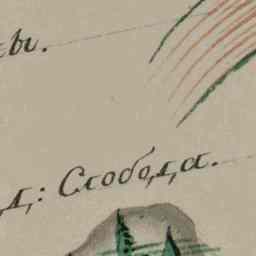 ы.
д: Слобода.